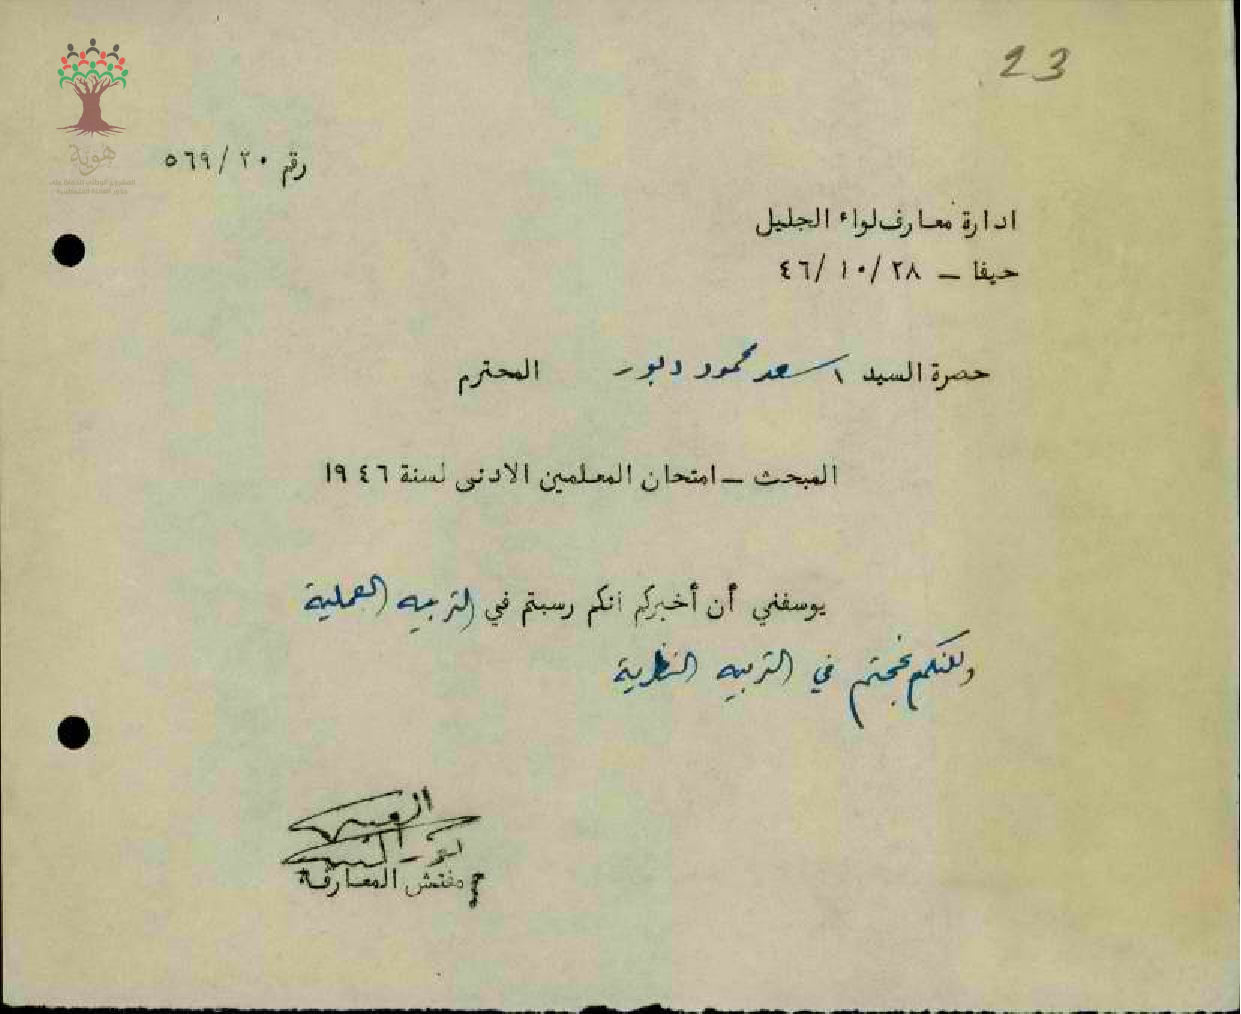 23
هوية
رقم ٢٠/ ٥٦٩
ادارة معارف لواء الجليل
حيفا – ٢٨/ ١٠/ ٤٦
حصرة السيد اسعد محمود دبور المحترم
المبحث – امتحان المعلمين الادنى لسنة ١٩٤٦
يوسفني أن أخبركم انكم رسبتم في التربيه العملية
ولكنكم نجحتم في التربيه النظرية
مفتش المعارف